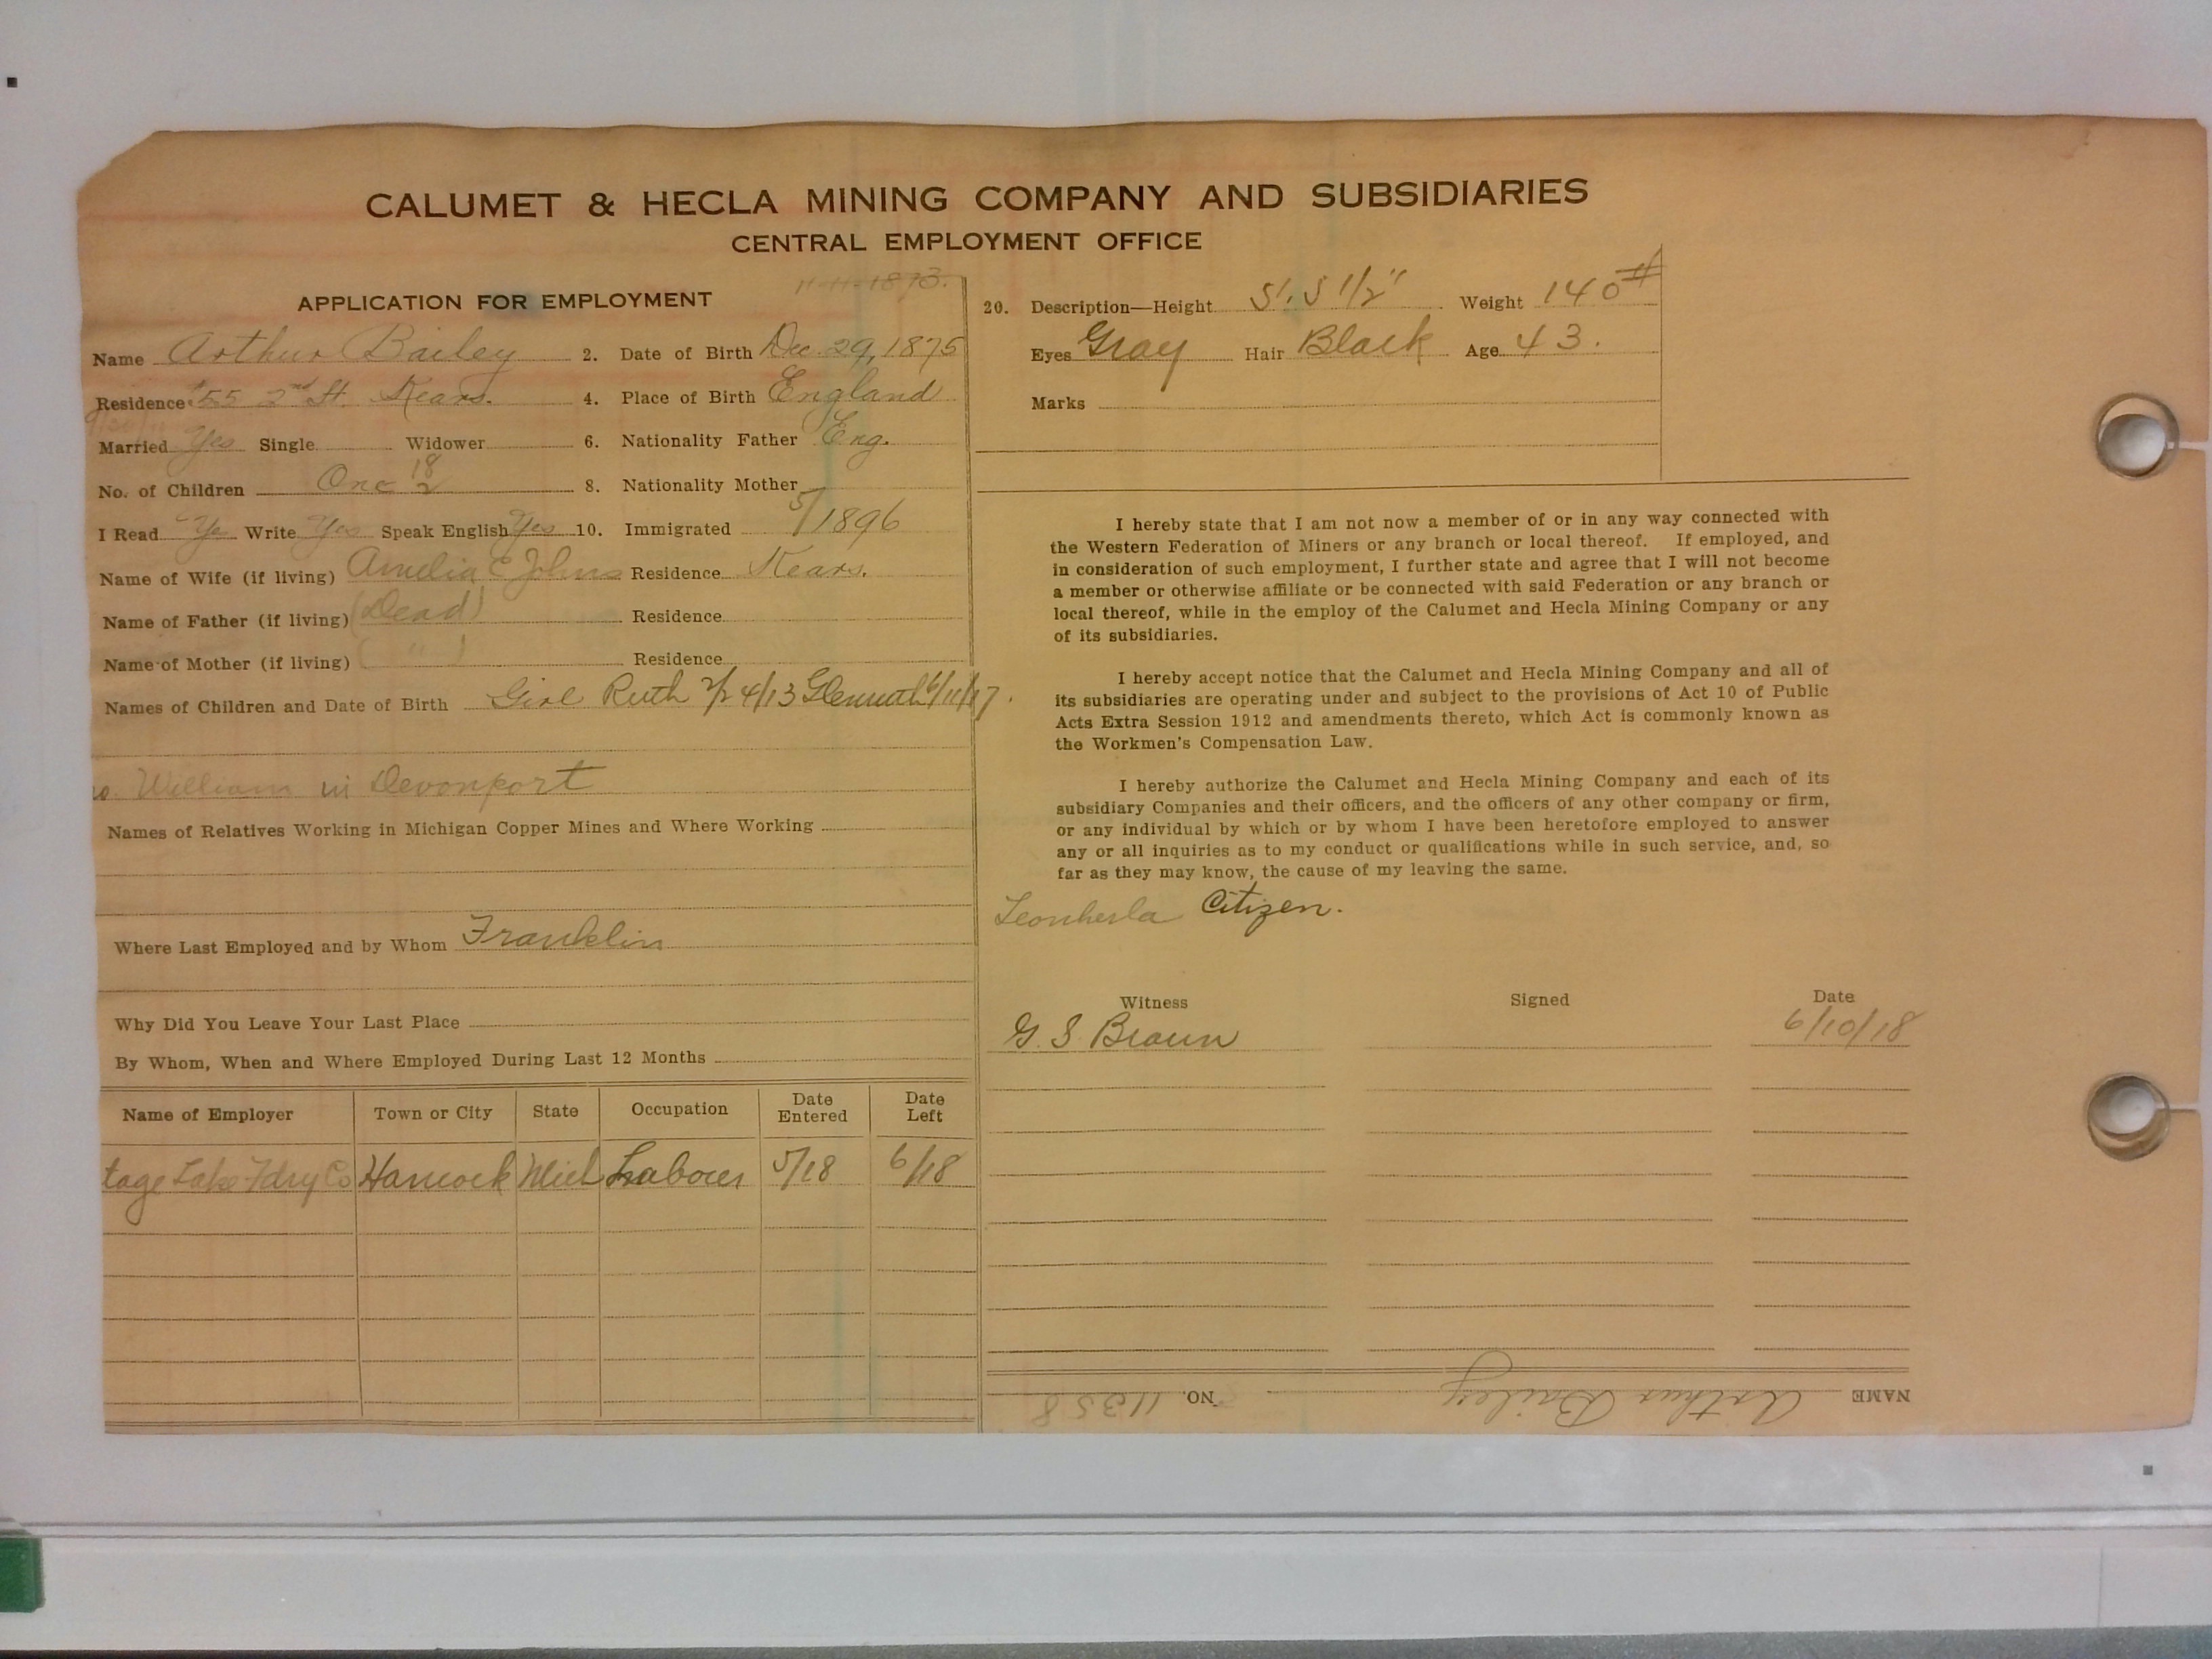 CALUMET & HECLA MINING COMPANY AND SUBSIDIARIES
CENTRAL EMPLOYMENT OFFICE
11-11-1873.
APPLICATION FOR EMPLOYMENT
Name Arthur Bailey 2. Date of Birth Dec. 29, 1875
Residence 55 2nd St. Kears. 4. Place of Birth England
Married Yes Single Widower 6. Nationality Father Eng.
No. of Children One 18 2 8. Nationality Mother
I Read Ye Write Yes Speak English Yes 10. Immigrated 5/1896
Name of Wife (if living) Amelia E Johns Residence Kears.
Name of Father (if living) (Dead) Residence
Name of Mother (if living) ( " ) Residence
Names of Children and Date of Birth Girl Ruth 4/13 6/11/17.
William in Devonport
Names of Relatives Working in Michigan Copper Mines and Where Working
Where Last Employed and by Whom Franklin
Why Did You Leave Your Last Place
By Whom, When and Where Employed During Last 12 Months
Name of Employer Town or City State Occupation Date Entered Date Left
tage Lake Fdry Co Hancock Mich Laborer 5/18 6/18
20. Description—Height 5'. 5 1/2" Weight 140#
Eyes Gray Hair Black Age 43.
Marks
I hereby state that I am not now a member of or in any way connected with
the Western Federation of Miners or any branch or local thereof. If employed, and
in consideration of such employment, I further state and agree that I will not become
a member or otherwise affiliate or be connected with said Federation or any branch or
local thereof, while in the employ of the Calumet and Hecla Mining Company or any
of its subsidiaries.
I hereby accept notice that the Calumet and Hecla Mining Company and all of
its subsidiaries are operating under and subject to the provisions of Act 10 of Public
Acts Extra Session 1912 and amendments thereto, which Act is commonly known as
the Workmen's Compensation Law.
I hereby authorize the Calumet and Hecla Mining Company and each of its
subsidiary Companies and their officers, and the officers of any other company or firm,
or any individual by which or by whom I have been heretofore employed to answer
any or all inquiries as to my conduct or qualifications while in such service, and, so
far as they may know, the cause of my leaving the same.
Citizen.
Witness Signed Date
G. S. Brown 6/10/18
NAME Arthur Bailey NO. 11358